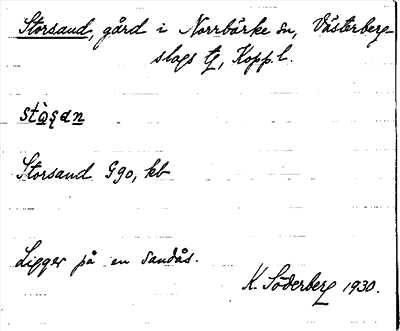 Storsand, gård i Norrbärke sn, Västerberg-
slags tg, Kopp. l.
stòsan
Storsand G90, kb
Ligger på en sandås.
K. Söderberg 1930.